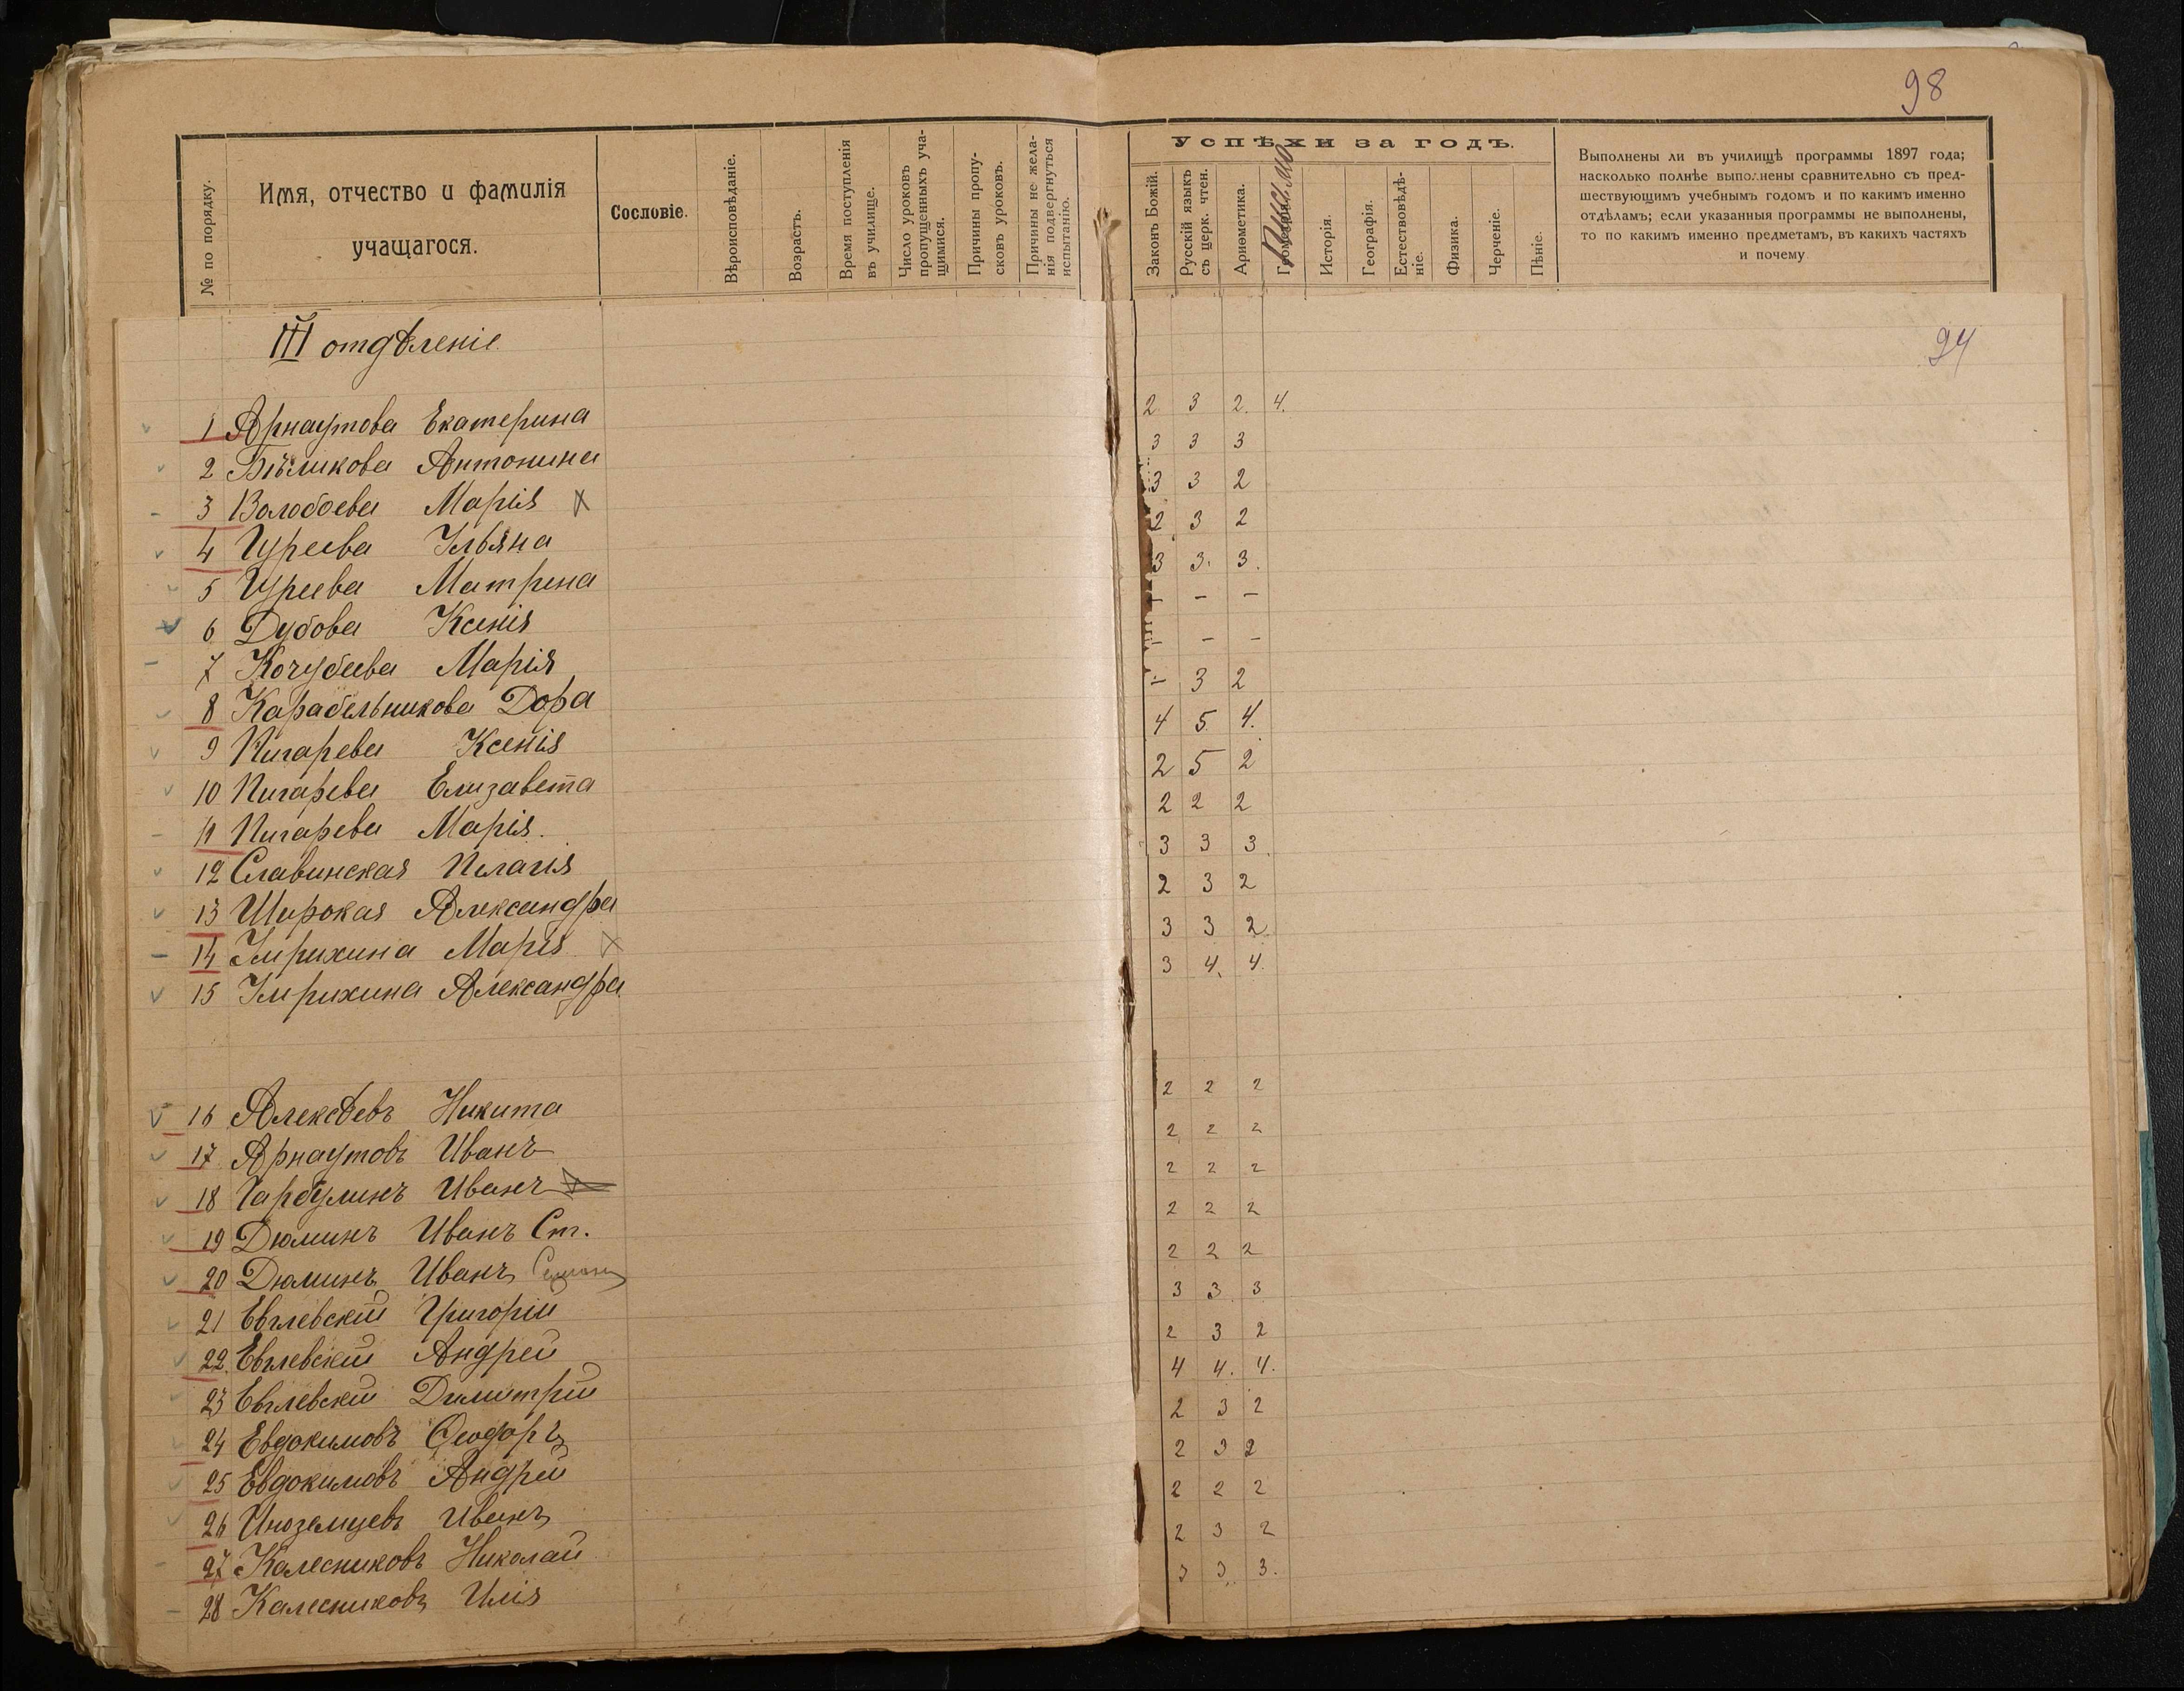 98
№ по порядку.
Имя, отчество и фамилія учащагося.
Сословіе.
Вѣроисповѣданіе.
Возрастъ.
Время поступленія въ училище.
Число уроковъ пропущенныхъ учащимися.
Причины пропусковъ уроковъ.
Причины не желанія подвергнуться испытанію.
Успѣхи за годъ.
Законъ Божій.
Русскій языкъ съ церк. чтен.
Ариѳметика.
Геометрія.
Письмо
Исторія.
Географія.
Естествовѣдѣніе.
Физика.
Черченіе.
Пѣніе.
Выполнены ли въ училищѣ программы 1897 года;
насколько полнѣе выполнены сравнительно съ пред-
шествующимъ учебнымъ годомъ и по какимъ именно
отдѣламъ; если указанныя программы не выполнены,
то по какимъ именно предметамъ, въ какихъ частяхъ
и почему
III отдѣленіе
94
1 Арнаутова Екатерина 2 3 2. 4.
2 Бѣликова Антонина 3 3 3
3 Волобоева Марія 3 3 2
4 Гуреева Ульяна 2 3 2
5 Гуреева Матрена 3 3. 3.
6 Дубова Ксенія – – –
7 Кочубеева Марія – – –
8 Карабельникова Дора – 3 2
9 Пигарева Ксенія 4 5 4.
10 Пигарева Елизавета 2 5 2
11 Пигарева Марія. 2 2 2
12 Славинская Пелагія 3 3 3.
13 Широкая Александра 2 3 2
14 Умрихина Марія 3 3 2
15 Умрихина Александра 3 4. 4.
16 Алексѣевъ Никита 2 2 2
17 Арнаутовъ Иванъ 2 2 2
18 Гарбулинъ Иванъ 2 2 2
19 Дюминъ Иванъ Ст. 2 2 2
20 Дюминъ Иванъ 2 2 2
21 Евглевскій Григорій 3 3 3
22. Евглевскій Андрей 2 3 2
23 Евглевскій Димитрій 4 4. 4.
24 Евдокимовъ Ѳеодоръ 2 3 2
25 Евдокимовъ Андрей 2 3 2
26 Иноземцевъ Иванъ 2 2 2
27 Калесниковъ Николай 2 3 2
28 Калесниковъ Илія 3 3 3.